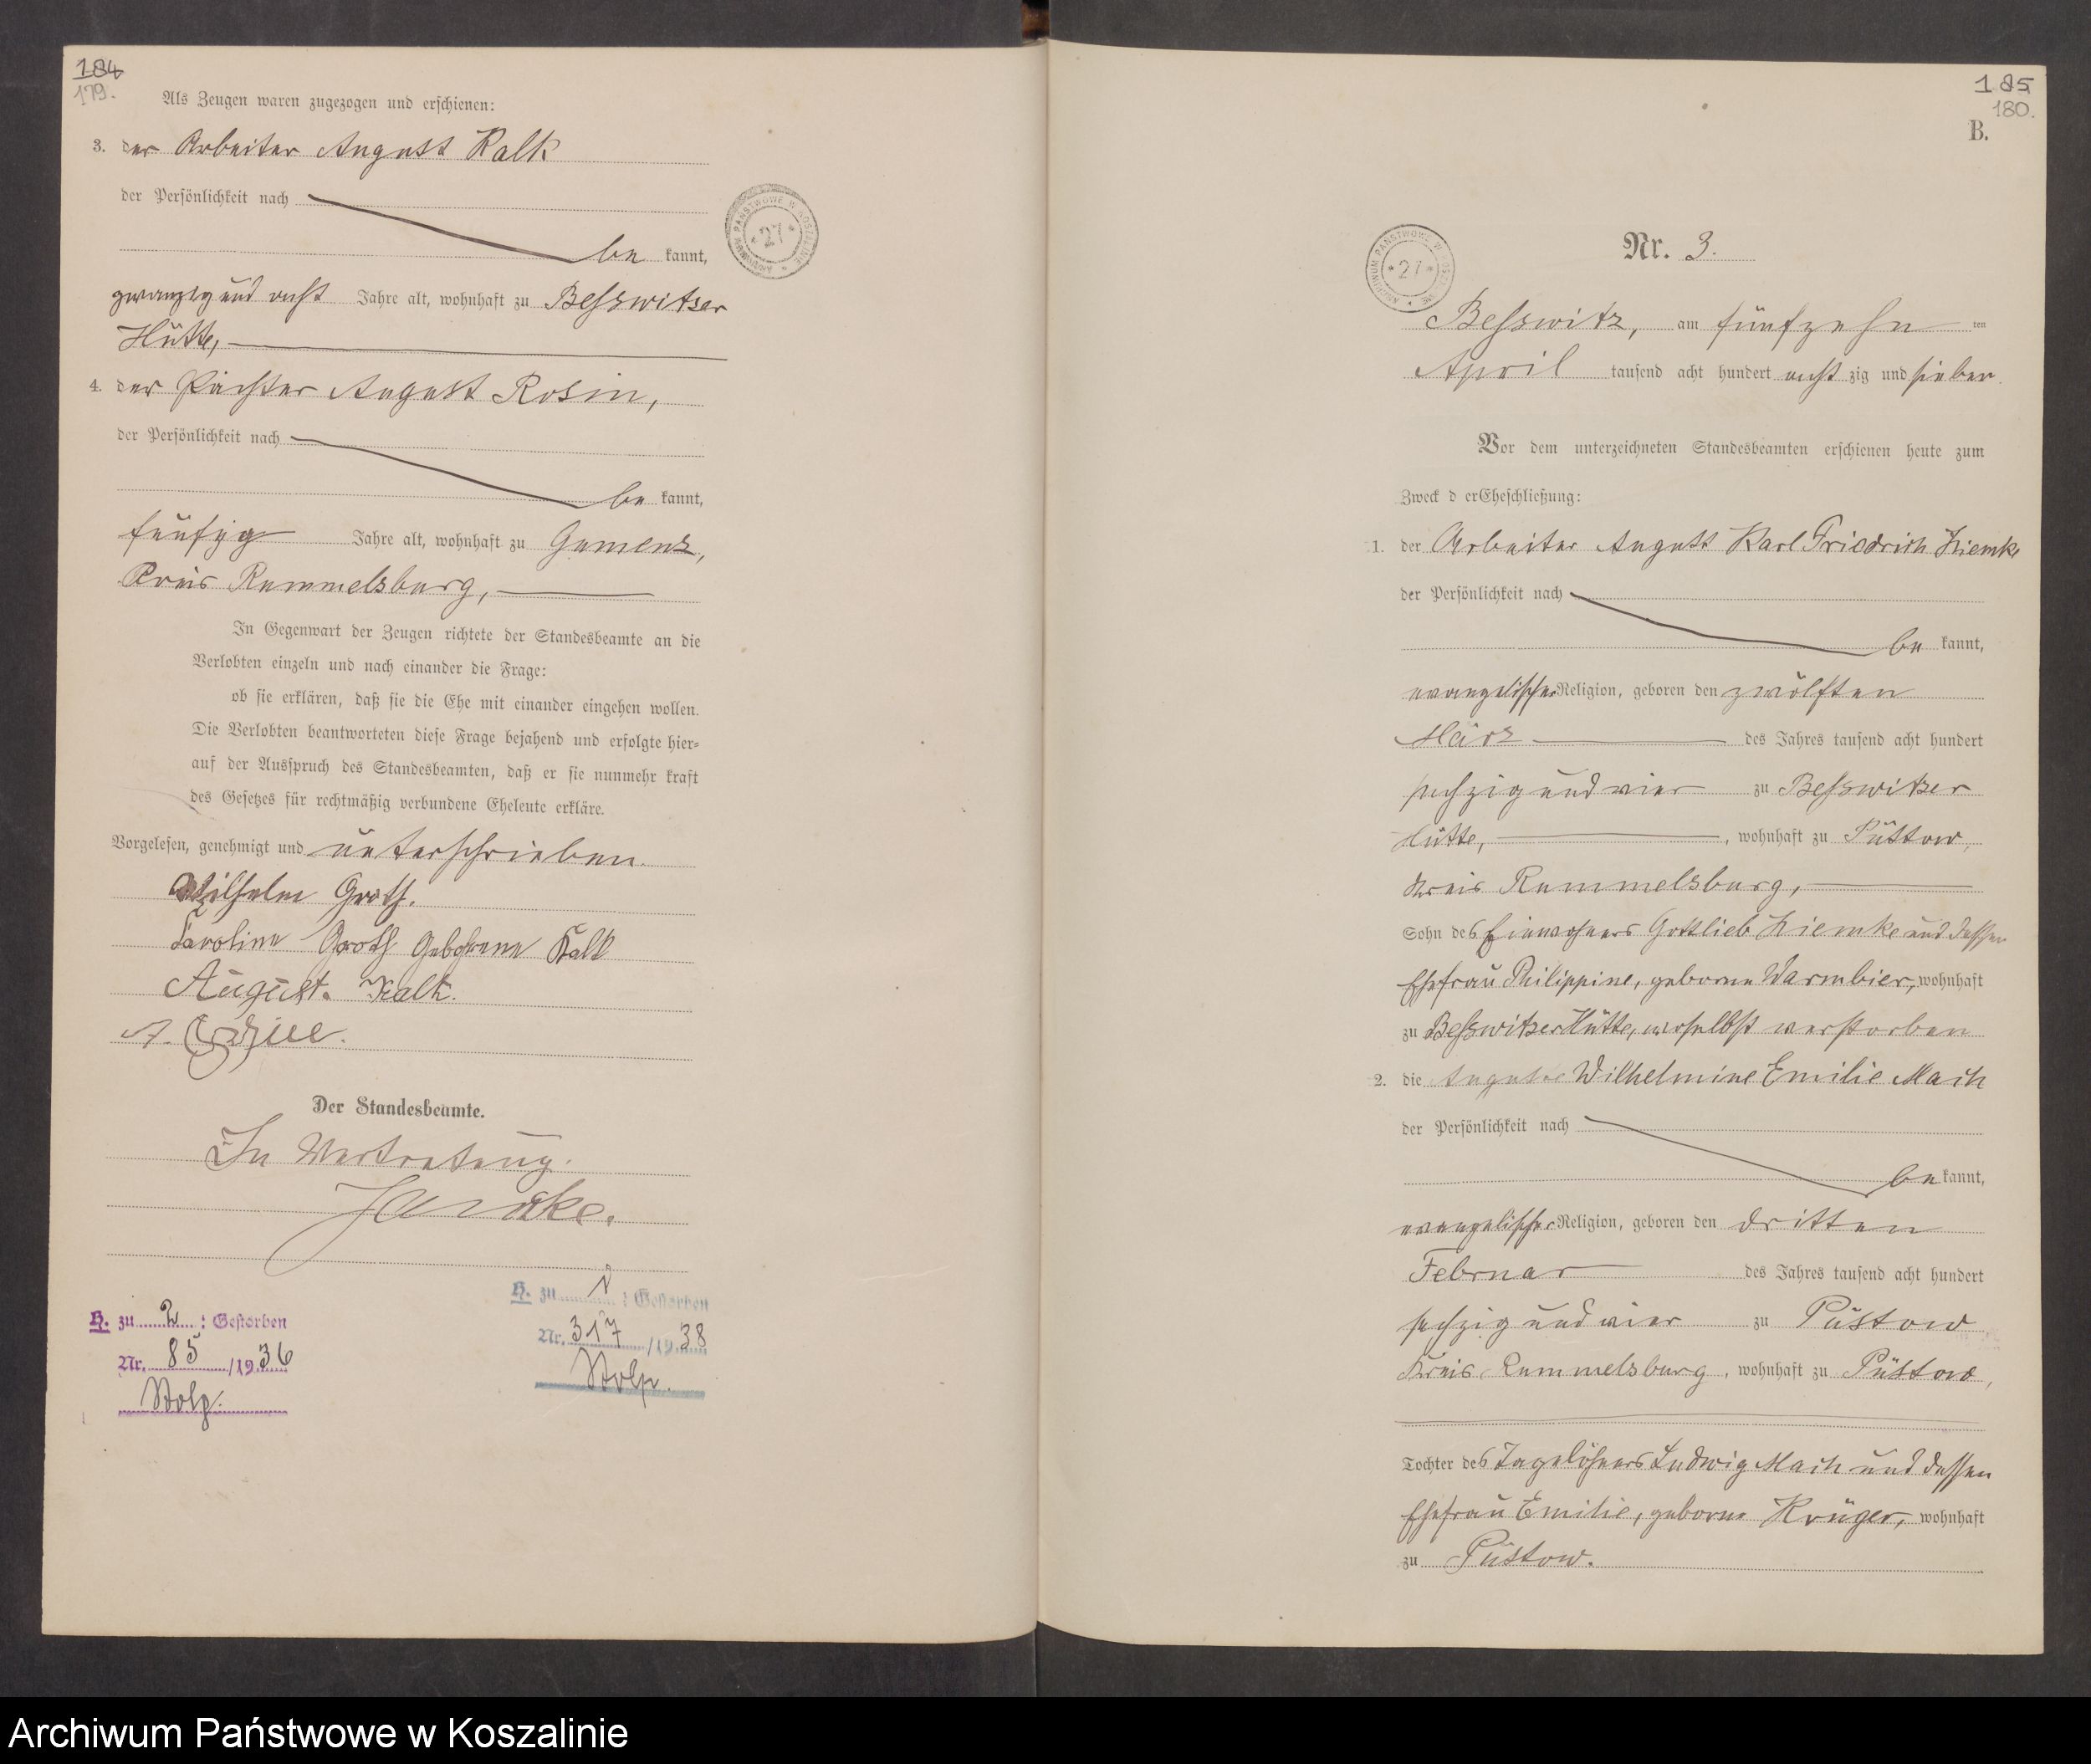 184
179.
Als Zeugen waren zugezogen und erschienen:
3. der Arbeiter August Kalk
der Persönlichkeit nach
be kannt,
zwanzig und acht Jahre alt, wohnhaft zu Besswitzer
Hütte,
4. der Pächter August Rosin,
der Persönlichkeit nach
be kannt,
fünfzig Jahre alt, wohnhaft zu Gumenz,
Kreis Rummelsburg,
In Gegenwart der Zeugen richtete der Standesbeamte an die
Verlobten einzeln und nach einander die Frage:
ob sie erklären, daß sie die Ehe mit einander eingehen wollen.
Die Verlobten beantworteten diese Frage bejahend und erfolgte hier=
auf der Ausspruch des Standesbeamten, daß er sie nunmehr kraft
des Gesetzes für rechtmäßig verbundene Eheleute erkläre.
Vorgelesen, genehmigt und unterschrieben.
Wilhelm Groth.
Karoline Groth Geborene Kalk
August. Kalk.
A.
Der Standesbeamte.
In Vertretung.
H. zu 2 : Gestorben
Nr. 85 /1936
Stolp.
H. zu 1 : Gestorben
Nr. 317 /1938
Stolp.
ARCHIWUM PAŃSTWOWE W KOSZALINIE * 27 *
185
180.
B.
ARCHIWUM PAŃSTWOWE W KOSZALINIE * 27 *
Nr. 3.
Besswitz, am fünfzehn ten
April tausend acht hundert acht zig und sieben.
Vor dem unterzeichneten Standesbeamten erschienen heute zum
Zweck d er Eheschließung:
1. der Arbeiter August Karl Friedrich Ziemke
der Persönlichkeit nach
be kannt,
evangelischer Religion, geboren den zwölften
März des Jahres tausend acht hundert
sechzig und vier zu Besswitzer
Hütte, , wohnhaft zu Püstow,
Kreis Rummelsburg,
Sohn des Einwohners Gottlieb Ziemke und dessen
Ehefrau Philippine, geborne Warmbier, wohnhaft
zu Besswitzer Hütte, woselbst verstorben
2. die Auguste Wilhelmine Emilie Mach
der Persönlichkeit nach
be kannt,
evangelischer Religion, geboren den dritten
Februar des Jahres tausend acht hundert
sechzig und vier zu Püstow
Kreis Rummelsburg, wohnhaft zu Püstow,
Tochter des Tagelöhners Ludwig Mach und dessen
Ehefrau Emilie, geborne Krüger, wohnhaft
zu Püstow.
Archiwum Państwowe w Koszalinie